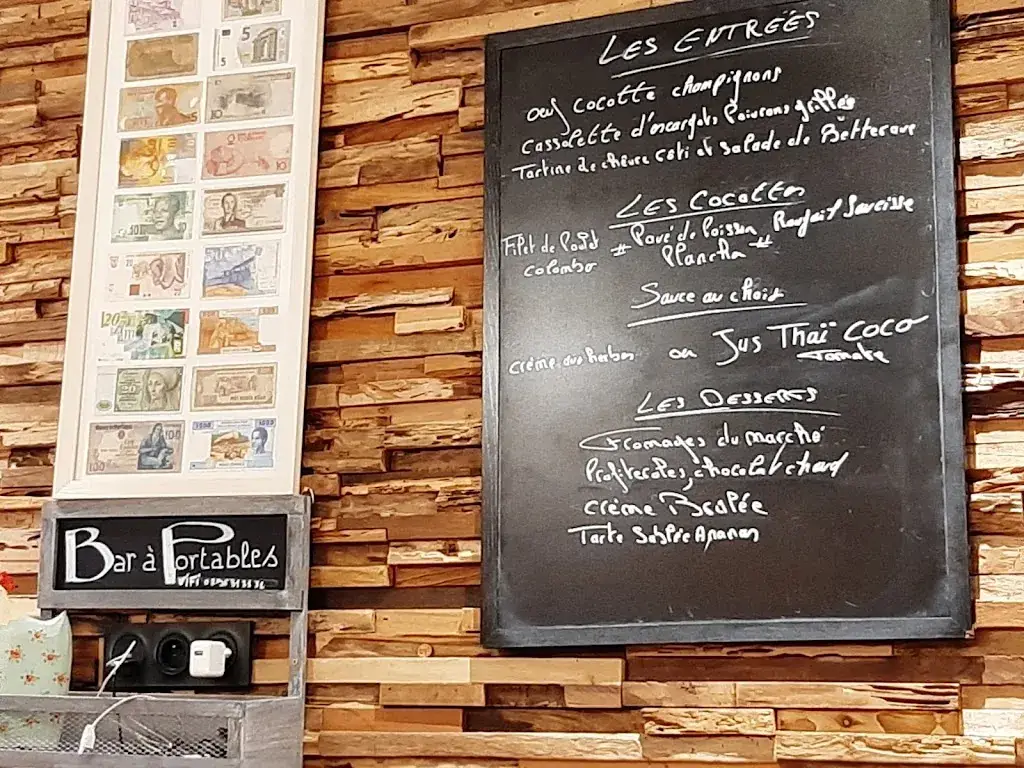 LES ENTREES
oeuf cocotte champignons
cassolette d'escargots Poivrons grillés
Tartine de chèvre coti et salade de Betterave
LES COCOTTES
Filet de Poulet colombo # Pavé de Poisson Plancha # Rougail Saucisse
Sauce au choix
crème aux herbes ou Jus Thaï COCO
Tomate
LES DESSERTS
Fromages du marché
Profiteroles, chocolat chaud
crème Brulée
Tarte Sablée Ananas
Bar à Portables
WiFi
5
5
10
10
100
20
100
100
1000
1000